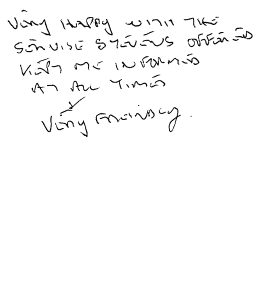 VERY HAPPY WITH THE
SERVISE STEVENS OFFERED
KEPT ME INFORMED
AT ALL TIMES
VERY FRIENDLY.